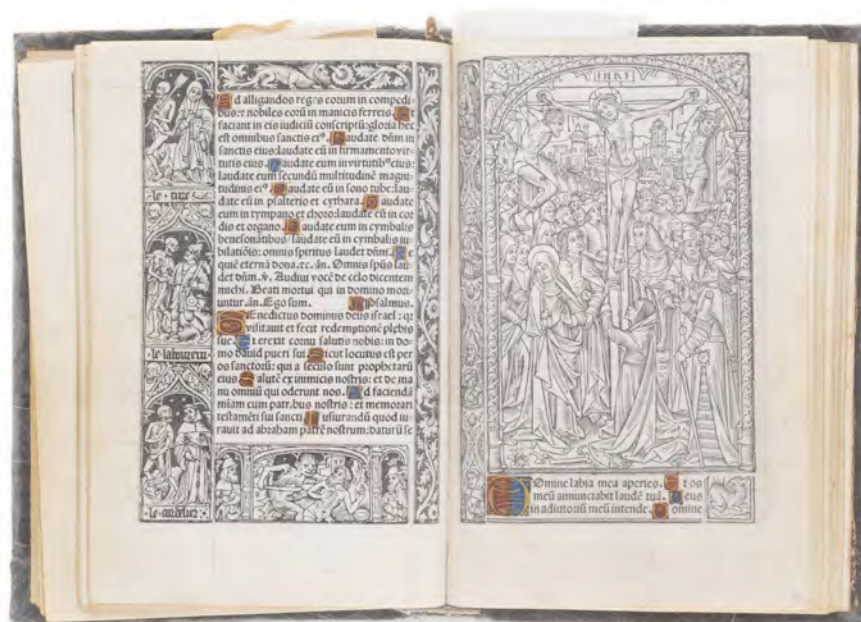 Ad alligandos reges eorum in compedi-
bus: ⁊ nobiles eorū in manicis ferreis. Ut
faciant in eis iudiciū conscriptū: gloria hec
est omnibus sanctis eiꝰ. Laudate dūm in
sanctis eius: laudate eū in firmamento vir-
tutis eius. Laudate eum in virtutibꝰ eius:
laudate eum secundū multitudinē magni
tudinis eiꝰ. Laudate eū in sono tube: lau-
date eū in psalterio et cythara. Laudate
eum in tympano et choro: laudate eū in cor
dis et organo. Laudate eum in cymbalis
benesonātibus / laudate eū in cymbalis iu-
bilatiōis: omnis spiritus laudet dūm. Re
quiē eternā dona. ⁊c. ān. Omnis spūs lau
det dūm. v̄. Audivi vocē de celo dicentem
michi. Beati mortui qui in domino mori-
untur. ān. Ego sum. Psalmus.
Benedictus dominus deus israel: qꝛ
visitauit et fecit redemptionē plebis
sue. Et erexit cornu salutis nobis: in do-
mo dauid pueri sui. Sicut locutus est per
os sanctorū: qui a seculo sunt prophetarū
eius. Salutē ex inimicis nostris: et de ma
nu omniū qui oderunt nos. Ad faciendā
miam cum patribus nostris: et memorari
testamēti sui sancti. Iusiurandū quod iu-
rauit ad abraham patrē nostrum: daturū se
le cure
le laboureur
le cordelier
INRI
Domine labia mea aperies. Et os
meū annunciabit laudē tuā. Deus
in adiutoriū meū intende. Domine